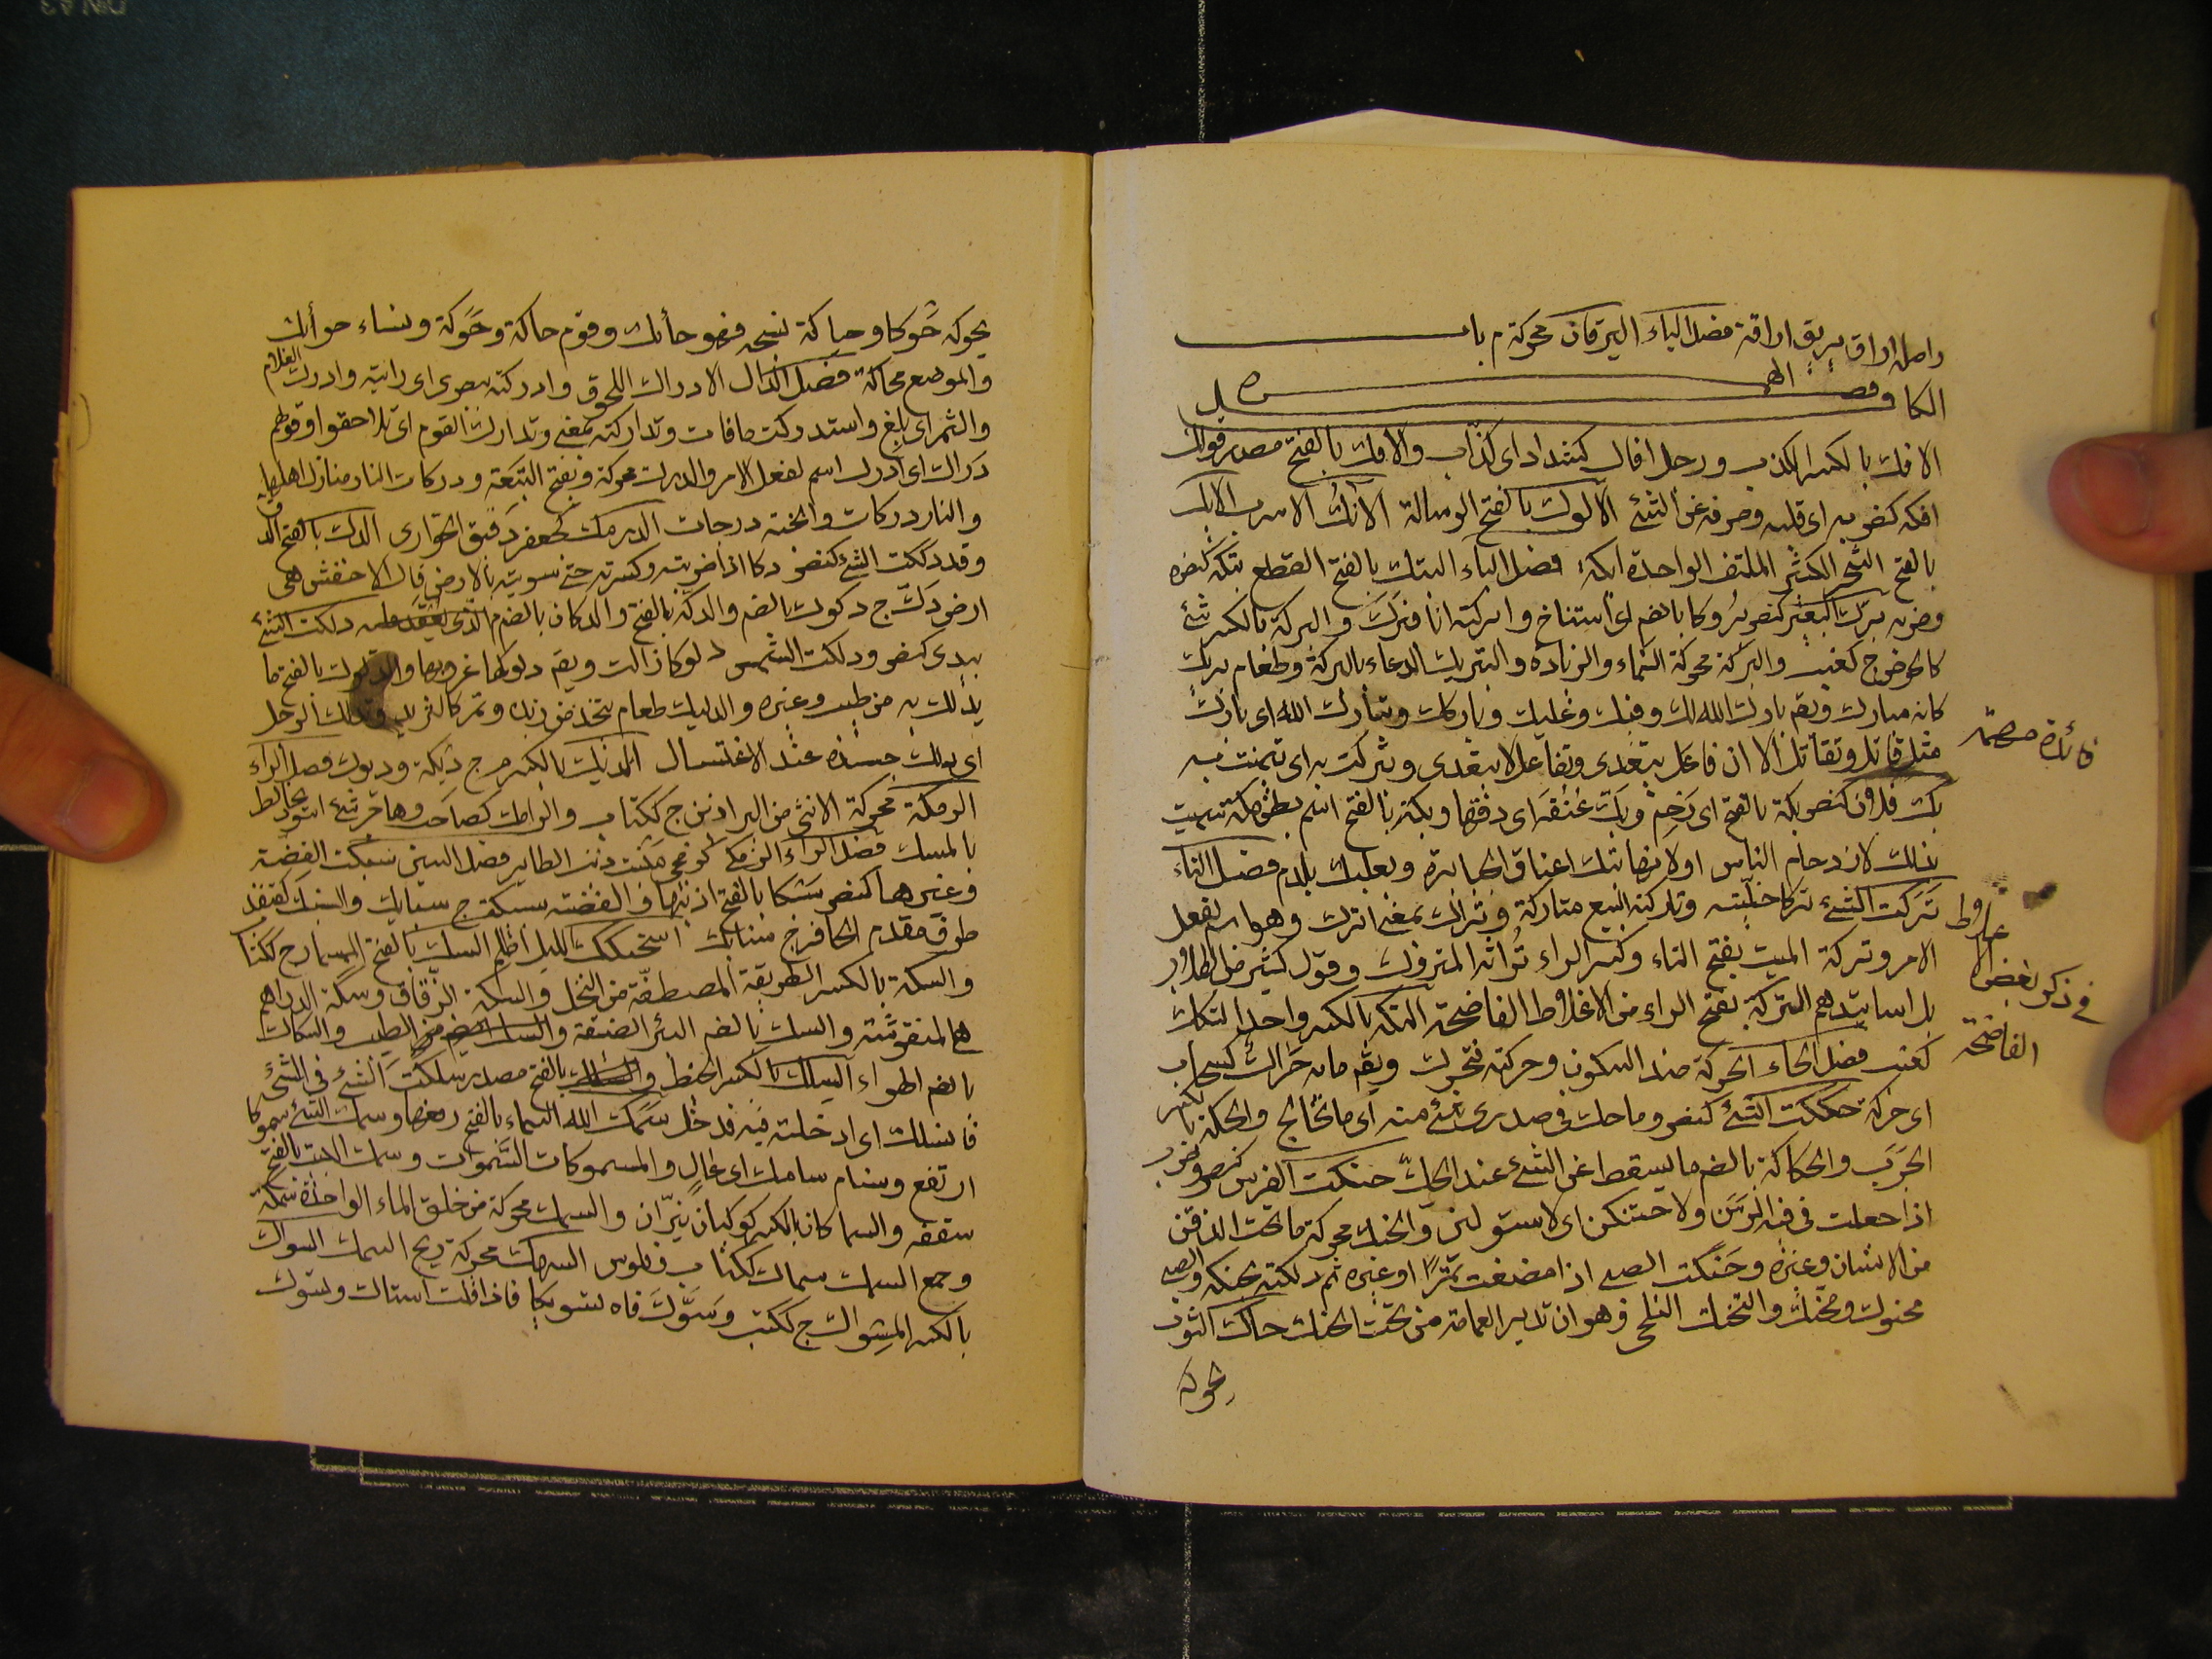 واصله اراق يريق اراقة فصل الياء اليرقان محركة م باب
الكاف فصل الهمزة
الافك بالكسر الكذب ورجل افاك كشداد اى كذاب والافك بالفتح مصدر قولك
افكه كضربه اى قلبه وصرفه عن الشئ الالوك بالفتح الرسالة الآنك الاسرب الايك
بالفتح الشجر الكثير الملتف الواحدة ايكة فصل الباء البتك بالفتح القطع بتكه كنصره
وضربه برك البعير كنصر بروكا بالضم اى استناخ وابركته انا فبرك والبركة بالكسر شئ
كالحوض ج كعنب والبركة محركة النماء والزيادة والتبريك الدعاء بالبركة وطعام بريك
كانه مبارك ويقم بارك الله لك وفيك وعليك وباركك وتبارك الله اى بارك
مثل قاتل وتقاتل الا ان فاعل يتعدى وتفاعل لا يتعدى وتبركت به اى تيمنت به
فائدة مهمة
بك فلان كنصر بكة بالفتح اى زحم وبك عنقه اى دقها وبكة بالفتح اسم بطن مكة سميت
بذلك لازدحام الناس اولانها تبك اعناق الجبابرة وبعلبك بلد م فصل التاء
تركت الشئ تركا خليته وتاركته البيع متاركة وتراك بمعنى اترك وهو اسم لفعل
الامر وتركة الميت بفتح التاء وكسر الراء تراثه المتروك وقول كثير من الطلاب
بل اساتيدهم التركة بفتح الراء من الاغلاط الفاضحة التكة بالكسر واحد التكك
فى ذكر بعض الاغلاط
الفاضحة
كعنب فصل الحاء الحركة ضد السكون وحركته فتحرك ويقم مابه حراك كسحاب
اى حركة حككت الشئ كنصر وماحك فى صدرى شئ منه اى ما تخالج والحكة بالكسر
الجرب والحكاكة بالضم ما يسقط عن الشئ عند الحك حنكت الفرس كنصر وضرب
اذا جعلت فى فيه الرسن ولاحتنكن اى لاستولين والحنك محركة ما تحت الذقن
من الانسان وغيره وحنكت الصبى اذا مضغت تمرا او غيره ثم دلكته بحنكه والصبى
محنوك ومحنك والتحنك التلحى وهو ان تدير العمامة من تحت الحنك حاك الثوب
يحوكه
يحوكه حوكا وحياكة نسجه فهو حائك وقوم حاكة وحوكة ونساء حوائك
والموضع محاكة فصل الدال الادراك اللحوق وادركته ببصرى اى رايته وادرك الغلام
والثمر اى بلغ واستدركت مافات وتداركته بمعنى وتدارك القوم اى تلاحقوا وقولهم
دراك اى ادرك اسم لفعل الامر والدرك محركة وبفتح التبعة ودركات النار منازل اهلها
والنار دركات والجنة درجات الدرمك كجعفر دقيق الحوارى الدك بالفتح الدق
وقد دككت الشئ كنصر دكا اذا ضربته وكسرته حتى سويته بالارض قال الاخفش هى
ارض دك ج دكوك بالضم والدكة بالفتح والدكان بالضم الذى يقعد عليه دلكت الشئ
بيدى كنصر ودلكت الشمس دلوكا زالت ويقم دلوكها غروبها والدلوك بالفتح ما
يدلك به من طيب وغيره والدليك طعام يتخذ من زبد وتمر كالثريد وتدلك الرجل
اى دلك جسده عند الاغتسال الديك بالكسر م ج ديكة وديوك فصل الراء
الرمكة محركة الانثى من البراذين ج ككتاب والرامك كصاحب وهاجر شئ اسود يخالط
بالمسك فصل الزاء الزمكى منبت ذنب الطاير فصل السين سبكت الفضة
وغيرهما كنصر سبكا بالفتح اذبتها والفضة سبيكة ج سبايك والسنبك كقنفذ
طرف مقدم الحافر ج سنابك اسحنكك الليل اظلم السك بالفتح المسمار ج ككتاب
والسكة بالكسر الطريقة المصطفة من النخل والسكة الزقاق وسكة الدراهم
هى المنقوشة والسك بالضم البئر الضيقة والسك من الطيب والسكاك
بالضم الهواء السلك بالكسر الخيط وبالفتح مصدر سلكت الشئ فى الشئ
فانسلك اى ادخلته فيه فدخل سمك الله السماء بالفتح رفعها وسمك الشئ سموكا
ارتفع وسنام سامك اى عال والمسموكات السموات وسمك البيت بالفتح
سقفه والسماكان بالكسر كوكبان نيران والسمك محركة من خلق الماء الواحدة سمكة
وجمع السمك سماك ككتاب وفلوس السهك محركة ريح السمك السواك
بالكسر المسواك ج ككتب وسوك فاه تسويكا فاذا قلت استاك وتسوك